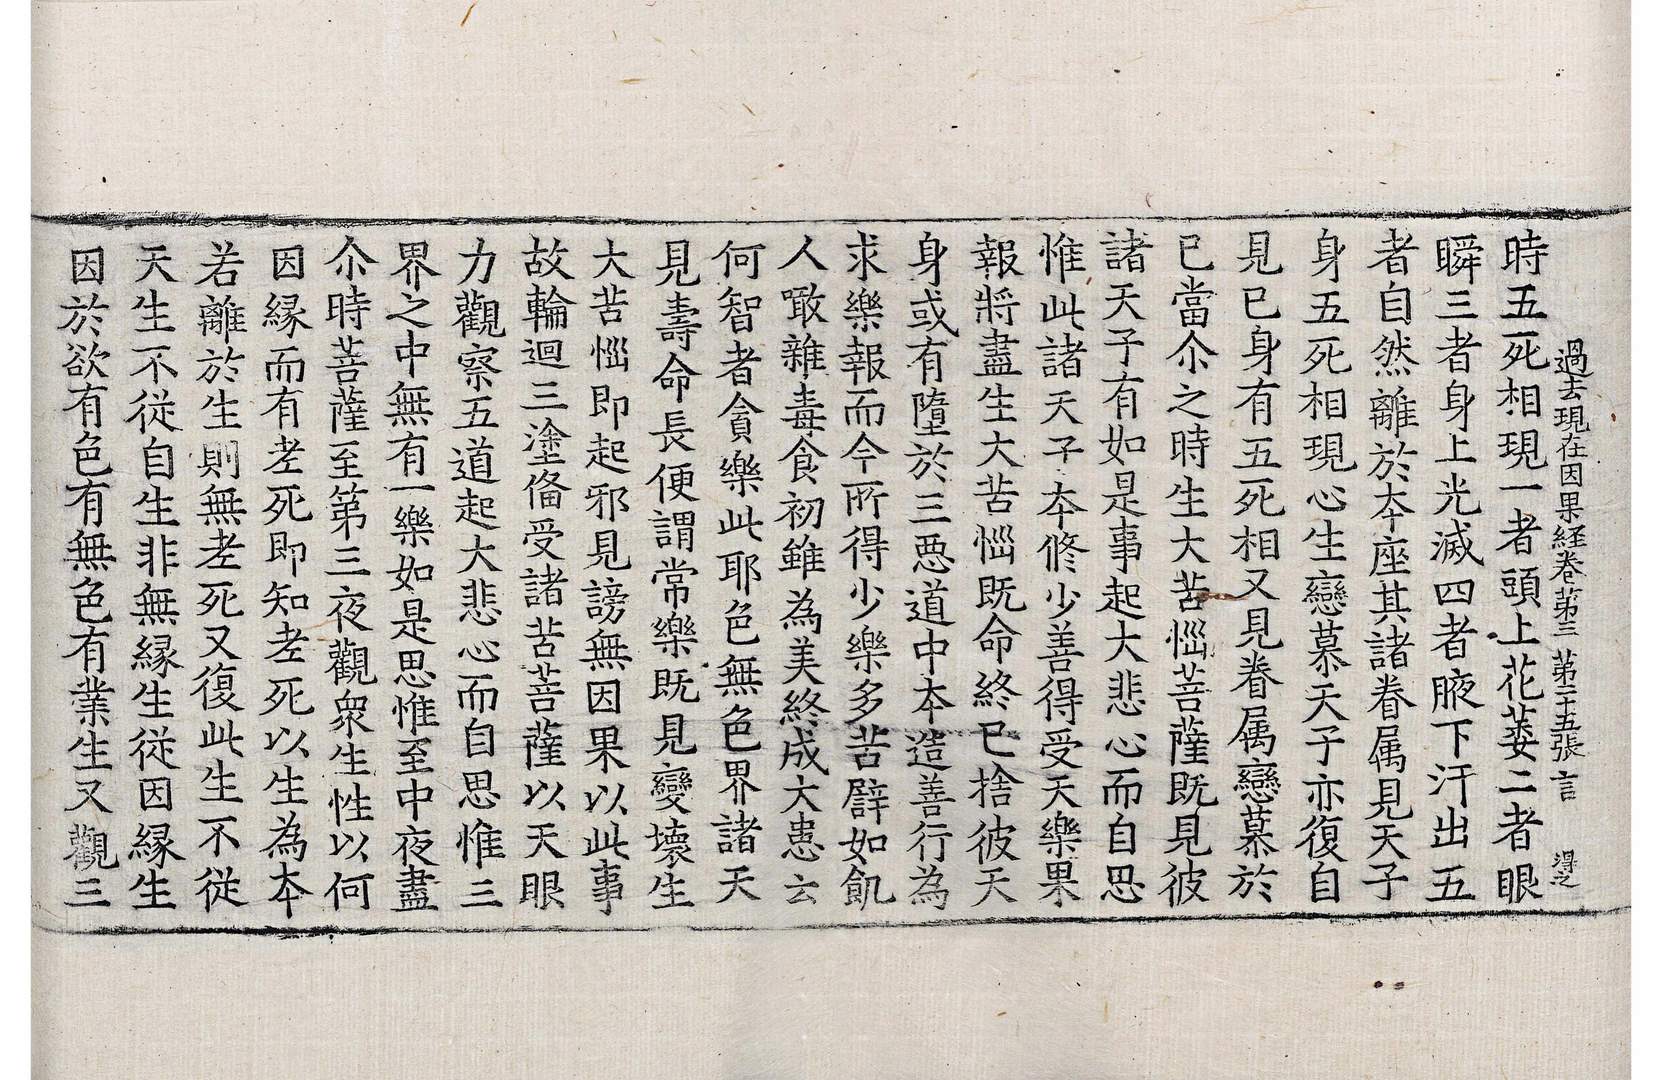 過去現在因果経卷第三 第二十五張 言 得之
時五死相現一者頭上花萎二者眼
瞬三者身上光滅四者腋下汗出五
者自然離於本座其諸眷属見天子
身五死相現心生戀慕天子亦復自
見已身有五死相又見眷属戀慕於
已當尒之時生大苦惱菩薩既見彼
諸天子有如是事起大悲心而自思
惟此諸天子本修少善得受天樂果
報將盡生大苦惱既命終已捨彼天
身或有墮於三惡道中本造善行為
求樂報而今所得少樂多苦譬如飢
人噉雜毒食初雖為美終成大患云
何智者貪樂此耶色無色界諸天
見壽命長便謂常樂既見變壞生
大苦惱即起邪見謗無因果以此事
故輪迴三塗俻受諸苦菩薩以天眼
力觀察五道起大悲心而自思惟三
界之中無有一樂如是思惟至中夜盡
尒時菩薩至第三夜觀衆生性以何
因縁而有老死即知老死以生為本
若離於生則無老死又復此生不從
天生不従自生非無縁生従因縁生
因於欲有色有無色有業生又觀三